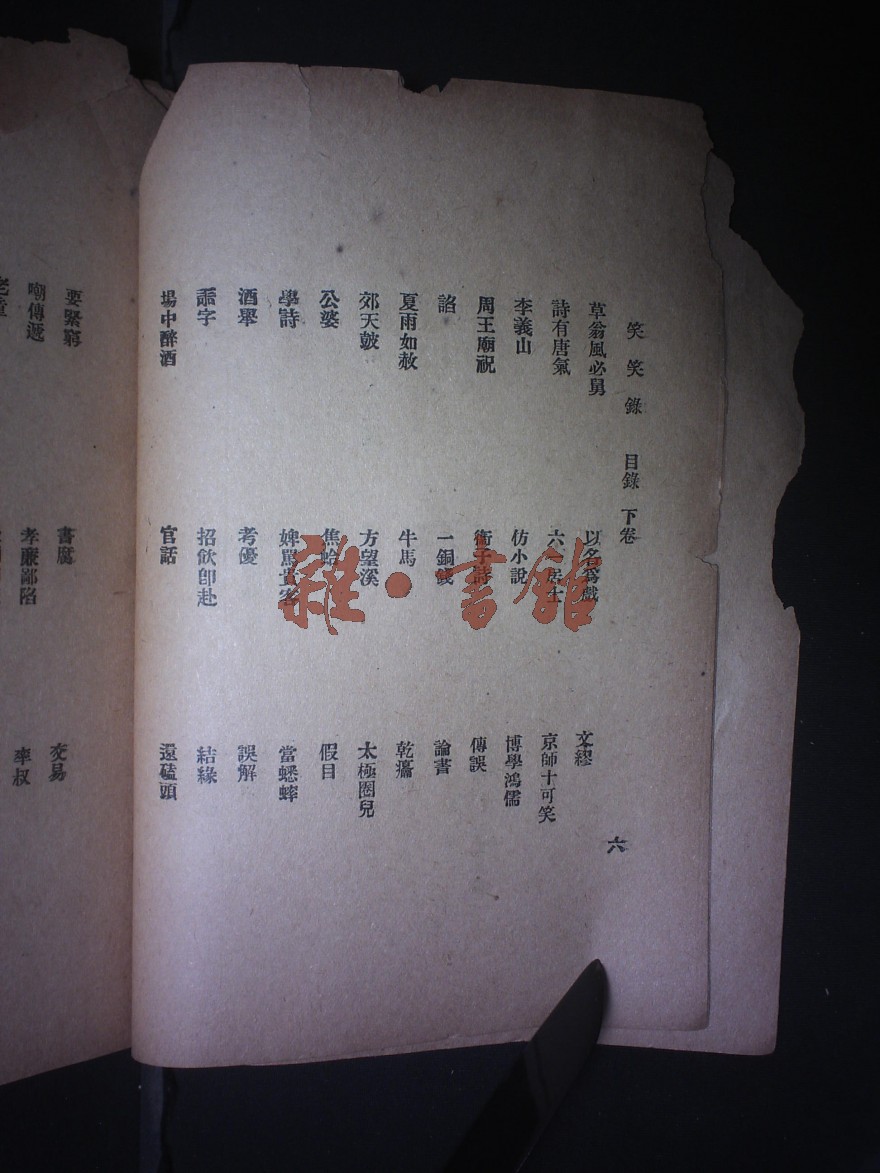 笑笑錄 目錄 下卷 六
草翁風必舅 以名爲戲 文繆
詩有唐氣 六一居士 京師十可笑
李義山 仿小說 博學鴻儒
周王廟祝 衙子詩 傳誤
謟 一銅錢 論書
夏雨如赦 牛馬 乾癟
郊天皷 方望溪 太極圈兒
公婆 焦蛤 假目
學詩 婢罵貴客 當蟋蟀
酒睪 考優 誤解
乖字 招飲卽赴 結緣
場中醉酒 官話 還磕頭
要緊窮 書腐 交易
嘲傳遞 孝廉鄙陷 率叔
雜·書館